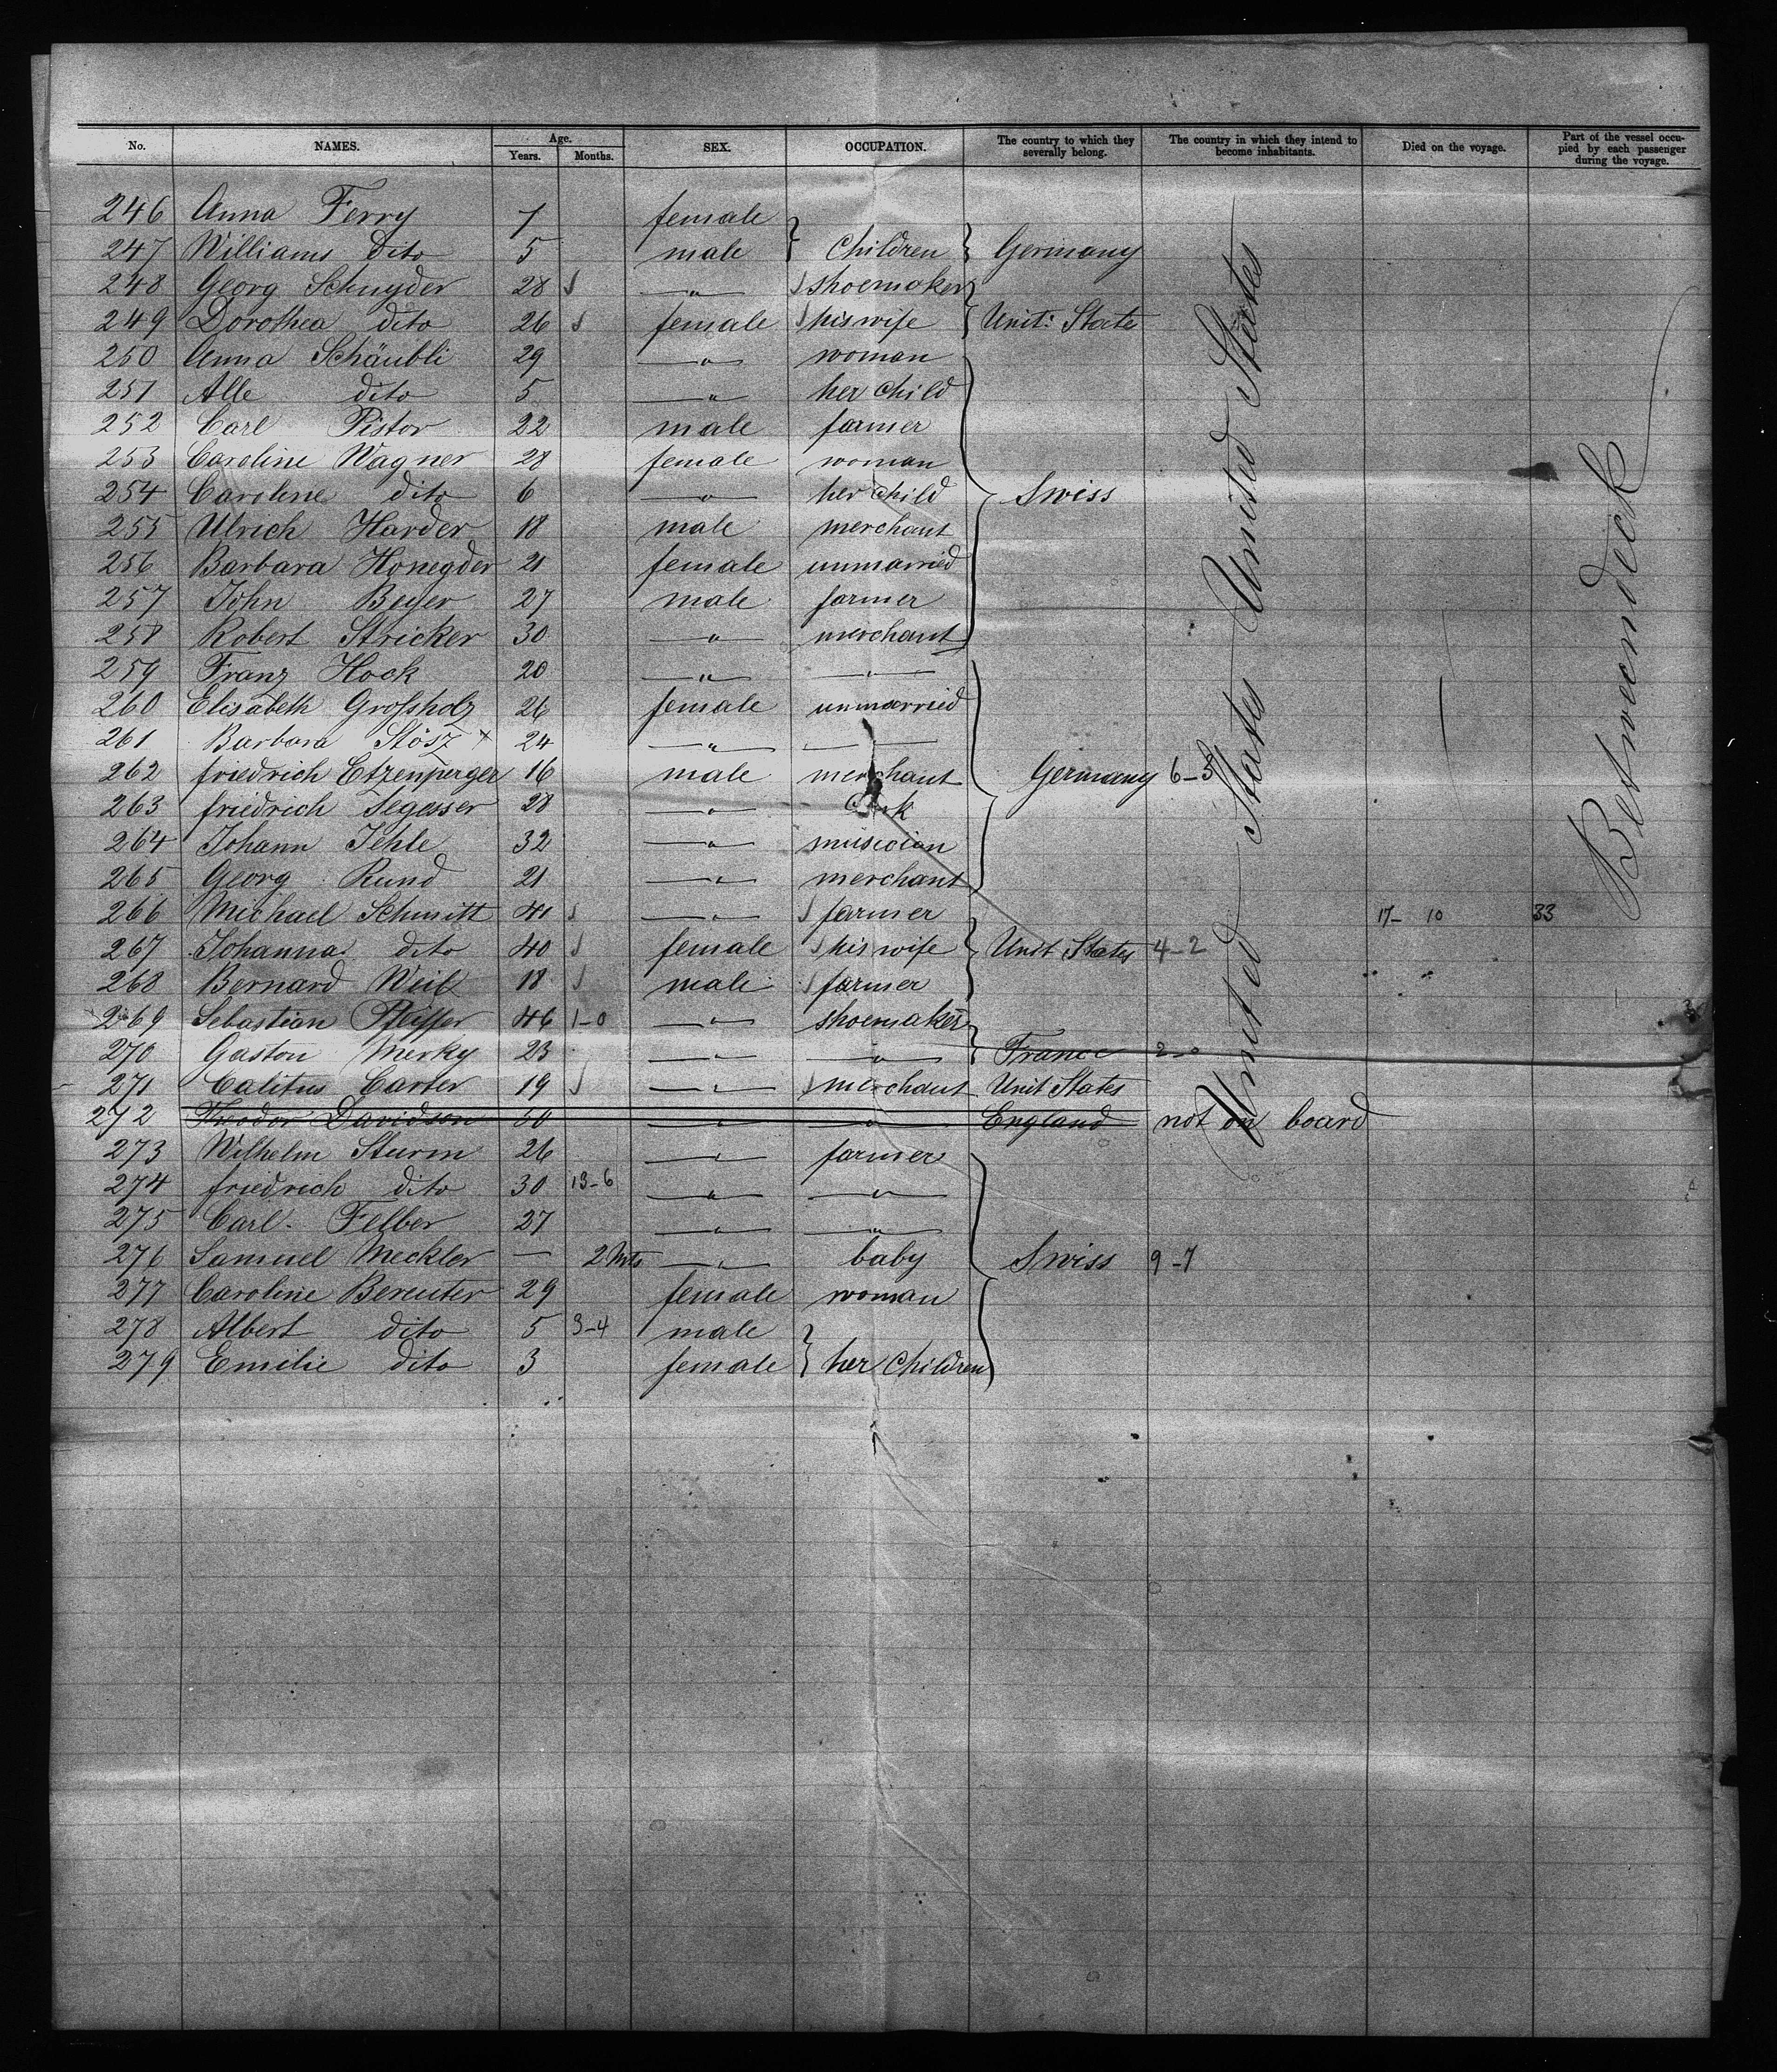 No. NAMES. Age. Years. Months. SEX. OCCUPATION. The country to which they severally belong. The country in which they intend to become inhabitants. Died on the voyage. Part of the vessel occupied by each passenger during the voyage.
246 Anna Ferry 7 female
247 Williams dito 5 male } Children } Germany
248 Georg Schnyder 28 — " — shoemaker
249 Dorothea dito 26 female his wife } Unit: State
250 Anna Schäubli 29 — " — woman
251 Alle dito 5 — " — her child
252 Carl Pistor 22 male farmer
253 Caroline Wagner 28 female woman
254 Caroline dito 6 — " — her child Swiss
255 Ulrich Harder 18 male merchant
256 Barbara Honegder 21 female unmarried
257 John Beyer 27 male farmer
258 Robert Stricker 30 — " — merchant
259 Franz Hock 20 — " — — " —
260 Elisabeth Grossholz 26 female unmarried
261 Barbara Stösz x 24 — " — — " —
262 friedrich Etzenperger 16 male merchant Germany 6-3
263 friedrich Segesser 28 — " —
264 Johann Jehle 32 — " — musician
265 Georg Rund 21 — " — merchant
266 Michael Schmitt 41 — " — farmer 17- 10 33
267 Johanna dito 40 female his wife Unit States 4-2
268 Bernard Weil 18 male farmer
269 Sebastian Pfeiffer 46 1-0 — " — shoemaker
270 Gaston Merky 23 — " — — " — } France 2-0
271 Calitus Carter 19 — " — merchant Unit States
272 Theodor Davidson 50 — " — — " — England not on board
273 Wilhelm Sturm 26 — " — farmer
274 friedrich dito 30 13-6 — " — — " —
275 Carl Felber 27 — " — — " —
276 Samuel Meckler — 2 Mts — " — baby Swiss 9-7
277 Caroline Bereuter 29 female woman
278 Albert dito 5 3-4 male
279 Emilie dito 3 female } her Children
United States United States
Betweendeck